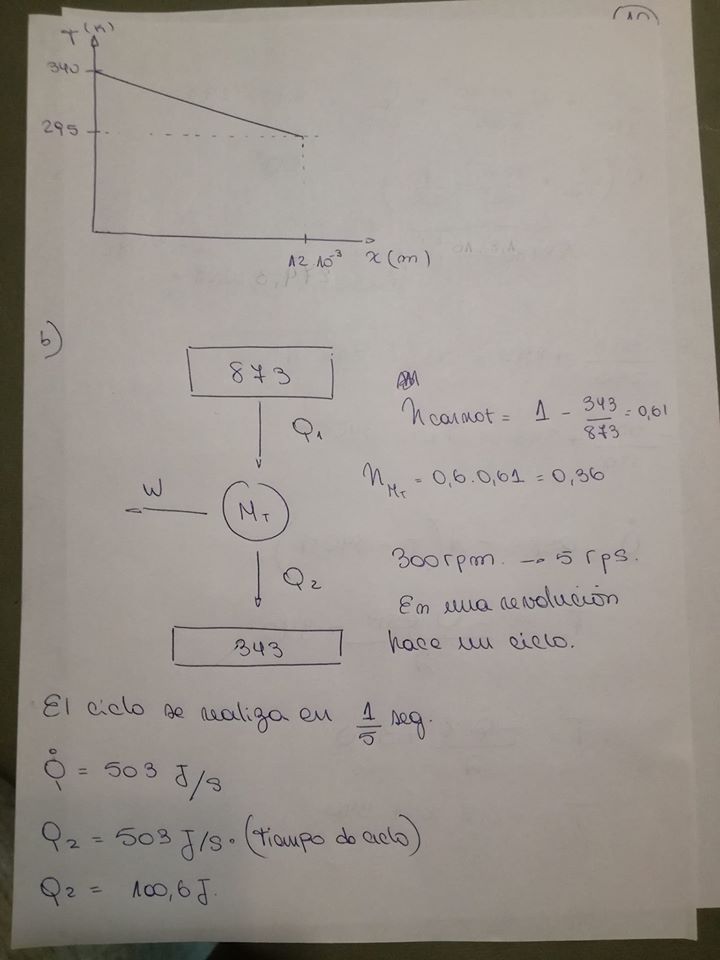 T (K)
340
295
12·10⁻³ x (m)
b)
873
Q₁
W
M_T
Q₂
343
η carnot = 1 - 343/873 = 0,61
η_M_T = 0,6·0,61 = 0,36
300 rpm. → 5 rps.
En una revolución
hace un ciclo.
El ciclo se realiza en 1/5 seg.
Q̇₁ = 503 J/s
Q₂ = 503 J/s·(tiempo do ciclo)
Q₂ = 100,6 J.